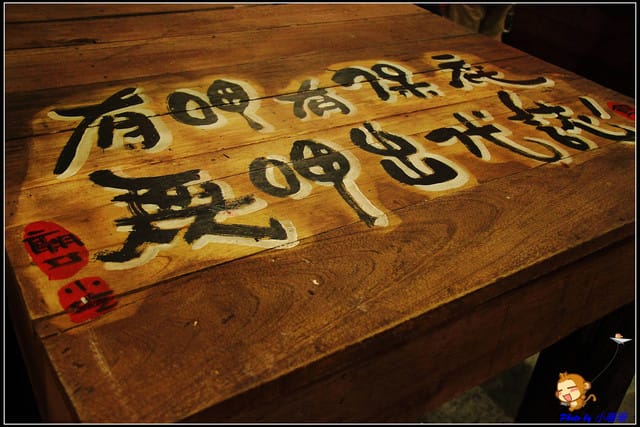 有呷有保庇
無呷出代誌
Photo by